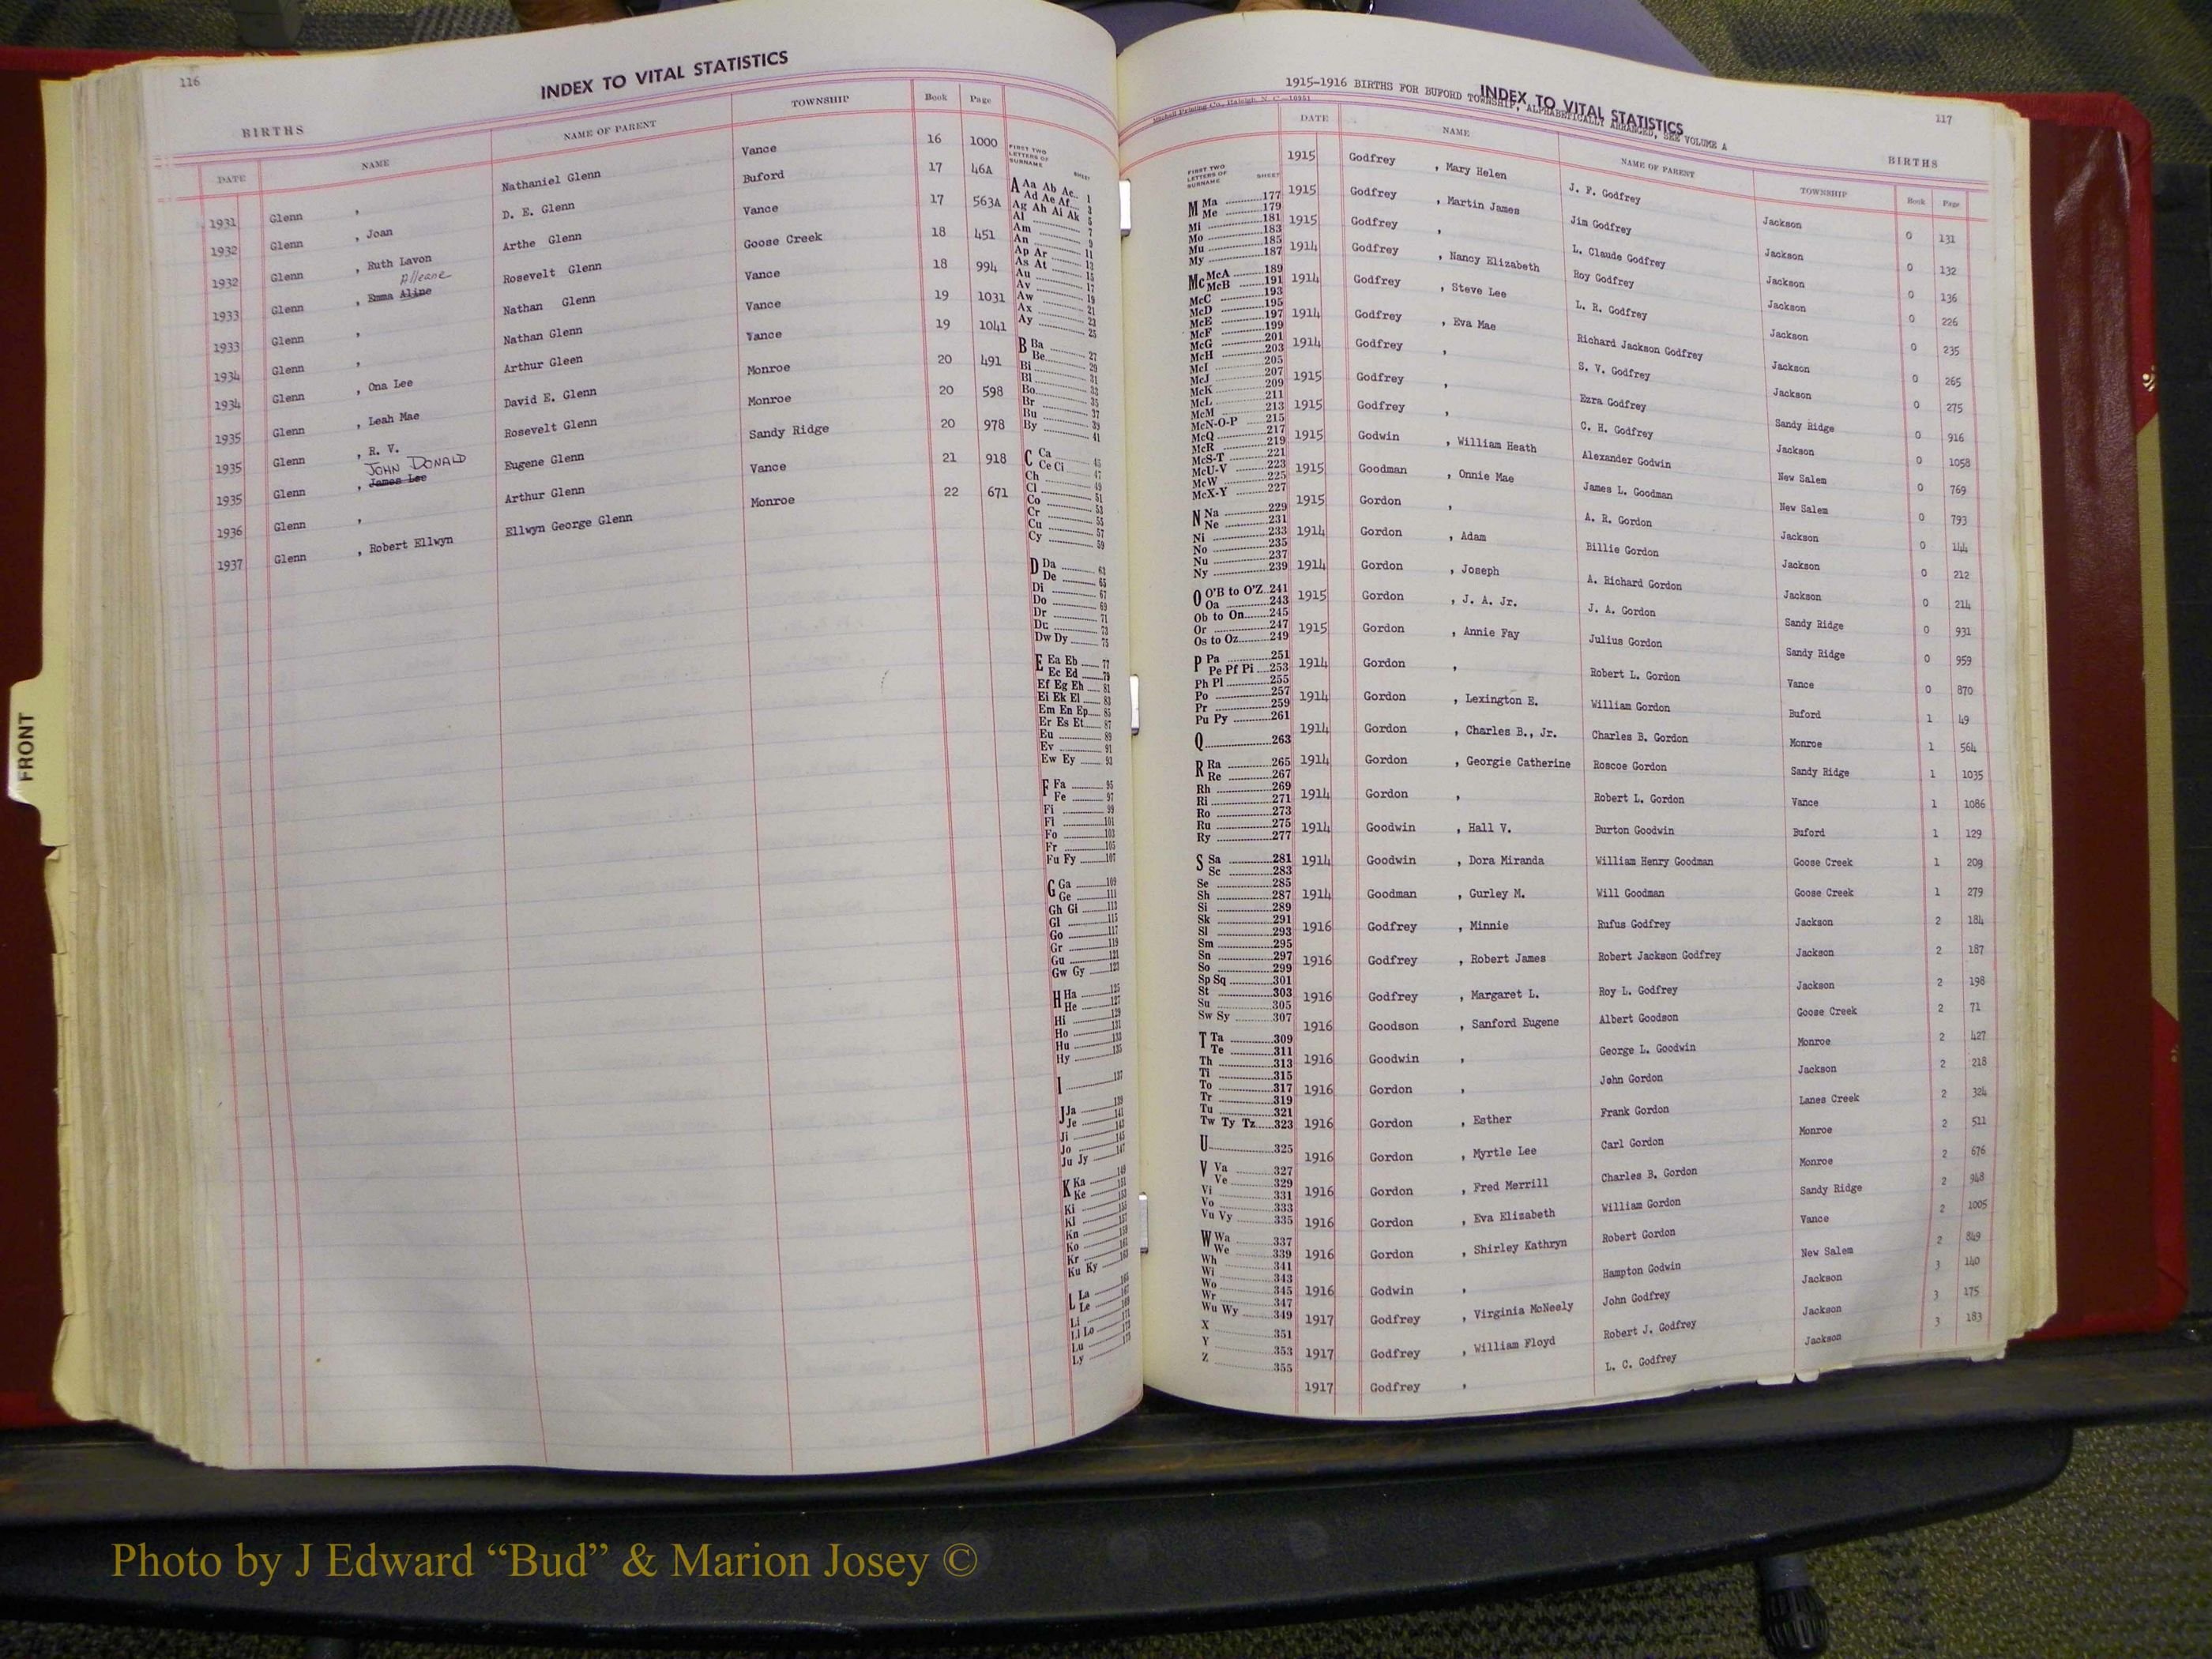 116
INDEX TO VITAL STATISTICS
BIRTHS
DATE NAME NAME OF PARENT TOWNSHIP Book Page
1931 Glenn , Nathaniel Glenn Vance 16 1000
1932 Glenn , Joan D. E. Glenn Buford 17 46A
1932 Glenn , Ruth Lavon Arthe Glenn Vance 17 563A
Alleane
1933 Glenn , Emma Aline Rosevelt Glenn Goose Creek 18 451
1933 Glenn , Nathan Glenn Vance 18 994
1934 Glenn , Nathan Glenn Vance 19 1031
1934 Glenn , Ona Lee Arthur Gleen Vance 19 1041
1935 Glenn , Leah Mae David E. Glenn Monroe 20 491
1935 Glenn , R. V. Rosevelt Glenn Monroe 20 598
JOHN DONALD
1935 Glenn , James Lee Eugene Glenn Sandy Ridge 20 978
1936 Glenn , Arthur Glenn Vance 21 918
1937 Glenn , Robert Ellwyn Ellwyn George Glenn Monroe 22 671
FIRST TWO LETTERS OF SURNAME SHEET
A Aa Ab Ac 1
Ad Ae Af 3
Ag Ah Ai Ak 5
Al 7
Am 9
An 11
Ap Ar 13
As At 15
Au 17
Av 19
Aw 21
Ax 23
Ay 25
B Ba 27
Be 29
Bi 31
Bl 33
Bo 35
Br 37
Bu 39
By 41
C Ca 45
Ce Ci 47
Ch 49
Cl 51
Co 53
Cr 55
Cu 57
Cy 59
D Da 63
De 65
Di 67
Do 69
Dr 71
Du 73
Dw Dy 75
E Ea Eb 77
Ec Ed 79
Ef Eg Eh 81
Ei Ek El 83
Em En Ep 85
Er Es Et 87
Eu 89
Ev 91
Ew Ey 93
F Fa 95
Fe 97
Fi 99
Fl 101
Fo 103
Fr 105
Fu Fy 107
G Ga 109
Ge 111
Gh Gi 113
Gl 115
Go 117
Gr 119
Gu 121
Gw Gy 123
H Ha 125
He 127
Hi 129
Ho 131
Hu 133
Hy 135
I 137
J Ja 139
Je 141
Ji 143
Jo 145
Ju Jy 147
K Ka 149
Ke 151
Ki 153
Kl 155
Kn 157
Ko 159
Kr 161
Ku Ky 163
L La 165
Le 167
Li 169
Ll Lo 171
Lu 173
Ly 175
1915-1916 BIRTHS FOR BUFORD TOWNSHIP, ALPHABETICALLY ARRANGED, SEE VOLUME A
INDEX TO VITAL STATISTICS
117
Mitchell Printing Co., Raleigh, N. C.—10951
BIRTHS
FIRST TWO LETTERS OF SURNAME SHEET
M Ma 177
Me 179
Mi 181
Mo 183
Mu 185
My 187
Mc McA 189
McB 191
McC 193
McD 195
McE 197
McF 199
McG 201
McH 203
McI 205
McJ 207
McK 209
McL 211
McM 213
McN-O-P 215
McQ 217
McR 219
McS-T 221
McU-V 223
McW 225
McX-Y 227
N Na 229
Ne 231
Ni 233
No 235
Nu 237
Ny 239
O O'B to O'Z 241
Oa 243
Ob to On 245
Or 247
Os to Oz 249
P Pa 251
Pe Pf Pi 253
Ph Pl 255
Po 257
Pr 259
Pu Py 261
Q 263
R Ra 265
Re 267
Rh 269
Ri 271
Ro 273
Ru 275
Ry 277
S Sa 281
Sc 283
Se 285
Sh 287
Si 289
Sk 291
Sl 293
Sm 295
Sn 297
So 299
Sp Sq 301
St 303
Su 305
Sw Sy 307
T Ta 309
Te 311
Th 313
Ti 315
To 317
Tr 319
Tu 321
Tw Ty Tz 323
U 325
V Va 327
Ve 329
Vi 331
Vo 333
Vu Vy 335
W Wa 337
We 339
Wh 341
Wi 343
Wo 345
Wr 347
Wu Wy 349
X 351
Y 353
Z 355
DATE NAME NAME OF PARENT TOWNSHIP Book Page
1915 Godfrey , Mary Helen J. F. Godfrey Jackson 0 131
1915 Godfrey , Martin James Jim Godfrey Jackson 0 132
1915 Godfrey , L. Claude Godfrey Jackson 0 136
1914 Godfrey , Nancy Elizabeth Roy Godfrey Jackson 0 226
1914 Godfrey , Steve Lee L. R. Godfrey Jackson 0 235
1914 Godfrey , Eva Mae Richard Jackson Godfrey Jackson 0 265
1914 Godfrey , S. V. Godfrey Jackson 0 275
1915 Godfrey , Ezra Godfrey Sandy Ridge 0 916
1915 Godfrey , C. H. Godfrey Jackson 0 1058
1915 Godwin , William Heath Alexander Godwin New Salem 0 769
1915 Goodman , Onnie Mae James L. Goodman New Salem 0 793
1915 Gordon , A. R. Gordon Jackson 0 144
1914 Gordon , Adam Billie Gordon Jackson 0 212
1914 Gordon , Joseph A. Richard Gordon Jackson 0 214
1915 Gordon , J. A. Jr. J. A. Gordon Sandy Ridge 0 931
1915 Gordon , Annie Fay Julius Gordon Sandy Ridge 0 959
1914 Gordon , Robert L. Gordon Vance 0 870
1914 Gordon , Lexington E. William Gordon Buford 1 49
1914 Gordon , Charles B., Jr. Charles B. Gordon Monroe 1 564
1914 Gordon , Georgie Catherine Roscoe Gordon Sandy Ridge 1 1035
1914 Gordon , Robert L. Gordon Vance 1 1086
1914 Goodwin , Hall V. Burton Goodwin Buford 1 129
1914 Goodwin , Dora Miranda William Henry Goodman Goose Creek 1 209
1914 Goodman , Gurley M. Will Goodman Goose Creek 1 279
1916 Godfrey , Minnie Rufus Godfrey Jackson 2 184
1916 Godfrey , Robert James Robert Jackson Godfrey Jackson 2 187
1916 Godfrey , Margaret L. Roy L. Godfrey Jackson 2 198
1916 Goodson , Sanford Eugene Albert Goodson Goose Creek 2 71
1916 Goodwin , George L. Goodwin Monroe 2 427
1916 Gordon , John Gordon Jackson 2 218
1916 Gordon , Esther Frank Gordon Lanes Creek 2 324
1916 Gordon , Myrtle Lee Carl Gordon Monroe 2 511
1916 Gordon , Fred Merrill Charles B. Gordon Monroe 2 676
1916 Gordon , Eva Elizabeth William Gordon Sandy Ridge 2 948
1916 Gordon , Shirley Kathryn Robert Gordon Vance 2 1005
1916 Godwin , Hampton Godwin New Salem 2 849
1917 Godfrey , Virginia McNeely John Godfrey Jackson 3 140
1917 Godfrey , William Floyd Robert J. Godfrey Jackson 3 175
1917 Godfrey , L. C. Godfrey Jackson 3 183
FRONT
Photo by J Edward “Bud” & Marion Josey ©